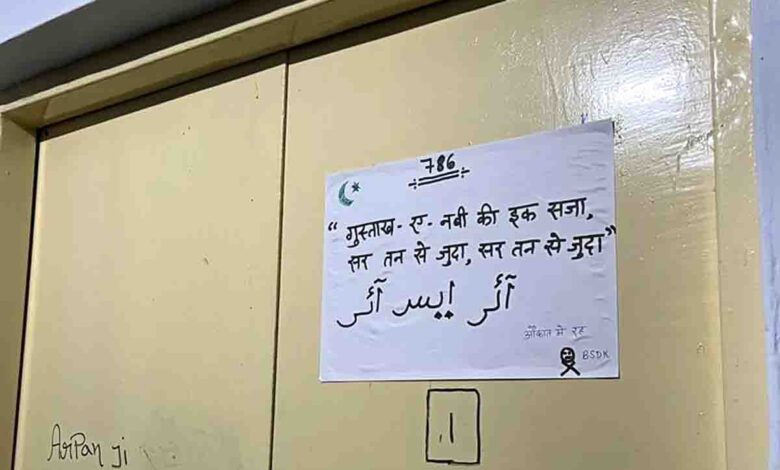 786
“गुस्ताख - ए - नबी की इक सजा,
सर तन से जुदा, सर तन से जुदा”
औकात मे रह
BSDK
Arpan ji